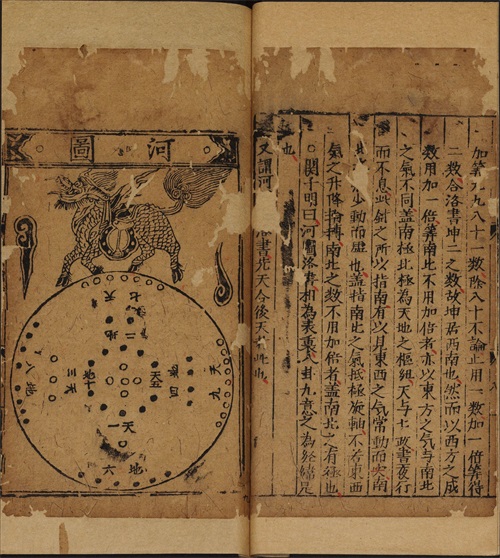 加筭九九八十一數除八十不論止用一數加一倍筭得
二數合洛書坤二之數故坤居西南也然而以西方之成
數用加一倍筭南北不用加倍者亦以東方之气与南北
之气不同盖南極北極為天地之樞紐天与七政晝夜行
而不息此針之所以指南有以見東西之气常動而
少動而虛也盖指南北之气抵極旋軸不若東西
气之升降南北之数不用加倍者盖南北之有極也
〇関子明曰河圖洛書相為表裏八卦九章之為經緯是
也
又謂河書先天合後天此也
河圖
天七
地二
天九
地四
天五
地十
天三
地八
天一
地六